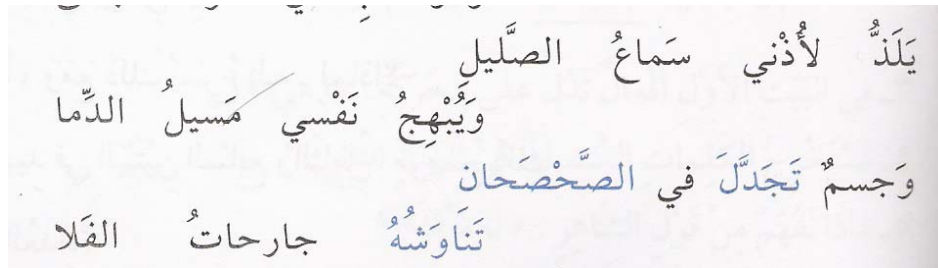 يَلَذُّ لأُذْني سَماعُ الصَّليلِ
وَيُبْهِجُ نَفْسي مَسيلُ الدِّما
وَجسمٌ تَجَدَّلَ في الصَّحْصَحَان
تَنَاوَشُهُ جارحاتُ الفَلا